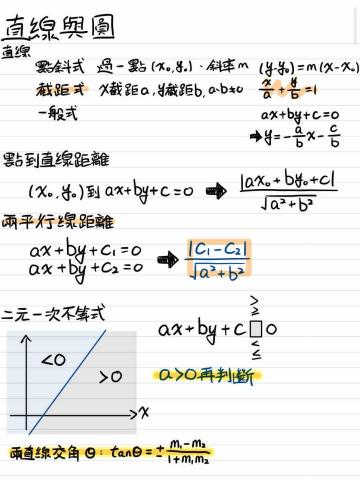 直線與圓
直線
點斜式 過一點(x₀,y₀)、斜率m (y-y₀)=m(x-x₀)
截距式 x截距a,y截距b,a·b≠0 x/a+y/b=1
一般式 ax+by+c=0
➡y=-a/b x-c/b
點到直線距離
(x₀,y₀)到ax+by+c=0 ➡ |ax₀+by₀+c|/√(a²+b²)
兩平行線距離
ax+by+c₁=0
ax+by+c₂=0 ➡ |c₁-c₂|/√(a²+b²)
二元一次不等式
>
≥
ax+by+c□0
<
≤
<0
>0
x
a>0再判斷
兩直線交角θ:tanθ=±(m₁-m₂)/(1+m₁m₂)